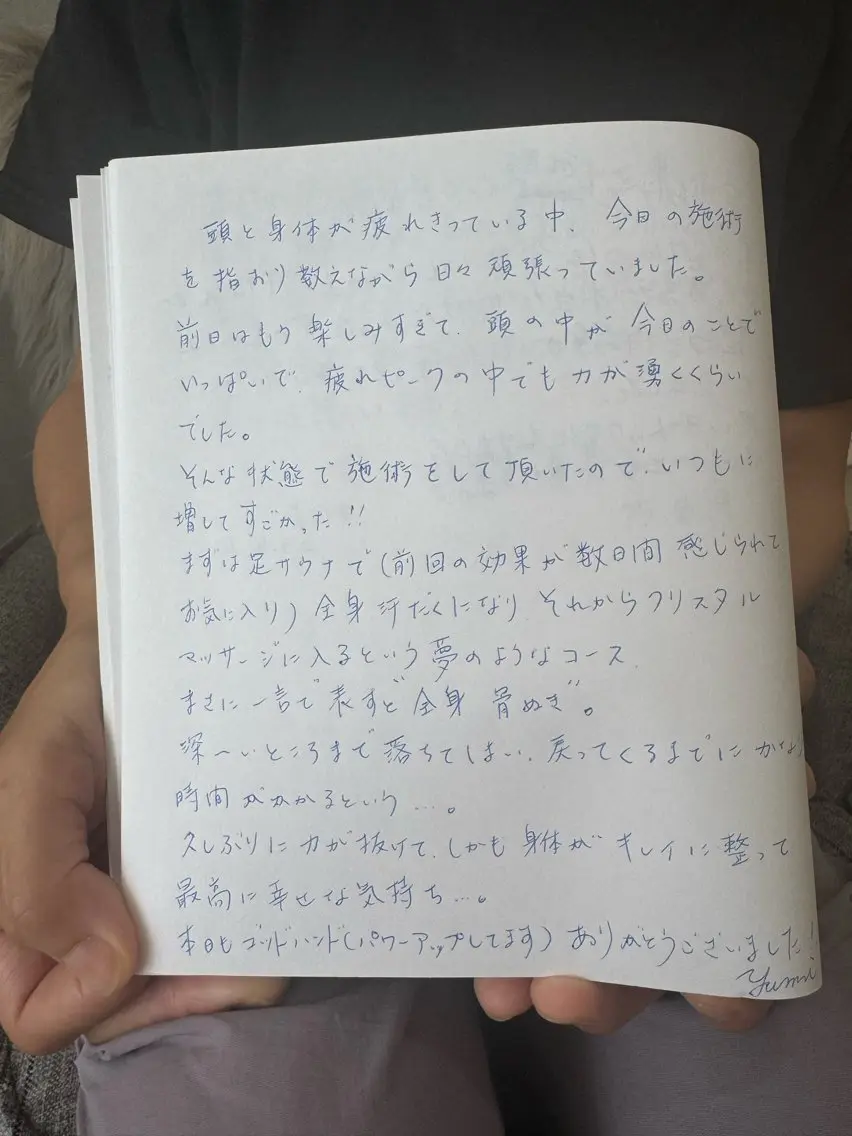 頭と身体が疲れきっている中、今日の施術
を指おり数えながら日々頑張っていました。
前日はもう楽しみすぎて、頭の中が今日のことで
いっぱいで、疲れピークの中でも力が湧くくらい
でした。
そんな状態で施術をして頂いたので、いつもに
増してすごかった!!
まずは足サウナで(前回の効果が数日間感じられて
お気に入り)全身汗だくになり、それからクリスタル
マッサージに入るという夢のようなコース。
まさに一言で表すと"全身骨ぬき"。
深〜いところまで落ちてしまい、戻ってくるまでにかなり
時間がかかるという…。
久しぶりに力が抜けて、しかも身体がキレイに整って
最高に幸せな気持ち…。
本日もゴッドハンド(パワーアップしてます)ありがとうございました!
Yumi